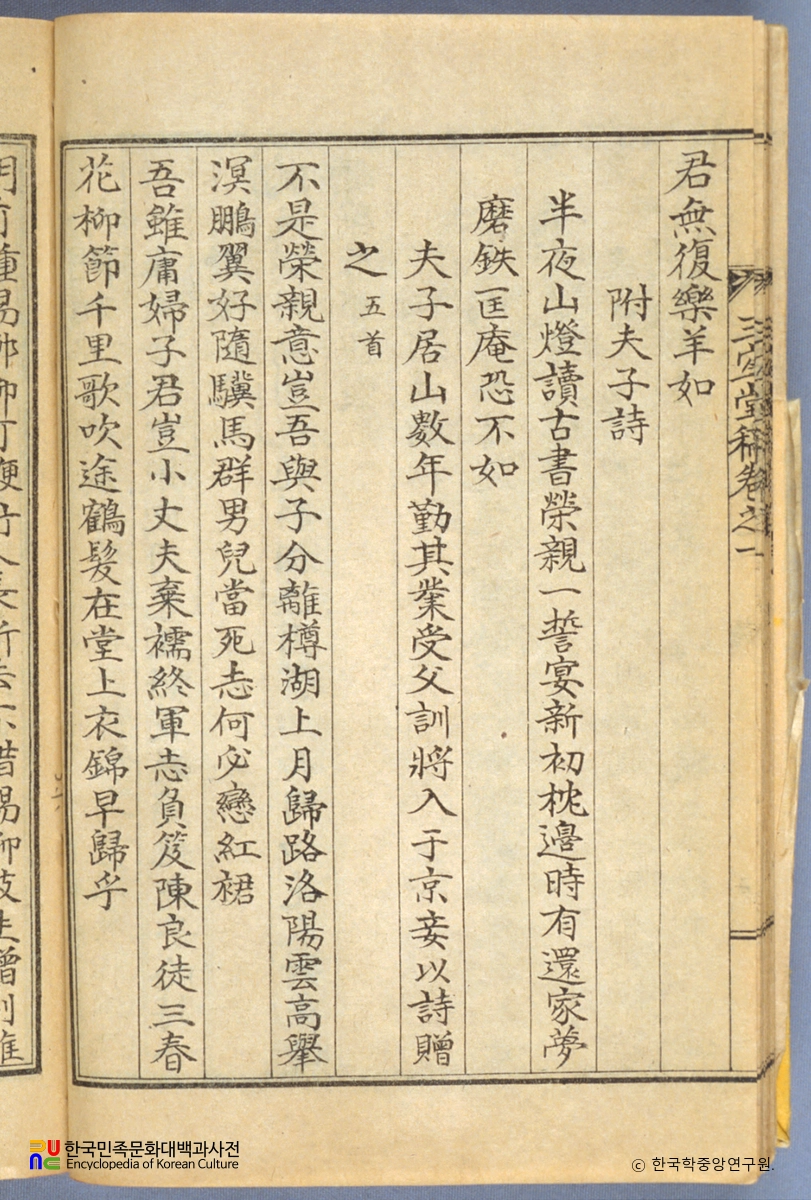 三宜堂稿卷之一
君無復樂羊如
附夫子詩
半夜山燈讀古書榮親一誓宴新初枕邊時有還家夢
磨鉄匡庵恐不如
夫子居山數年勤其業受父訓將入于京妾以詩贈
之 五首
不是榮親意豈吾與子分離樽湖上月歸路洛陽雲高擧
溟鵬翼好隨驥馬群男兒當死志何必戀紅裙
吾雖庸婦子君豈小丈夫棄襦終軍志負笈陳良徒三春
花柳節千里歌吹途鶴髮在堂上衣錦早歸乎
한국민족문화대백과사전
Encyclopedia of Korean Culture
© 한국학중앙연구원.